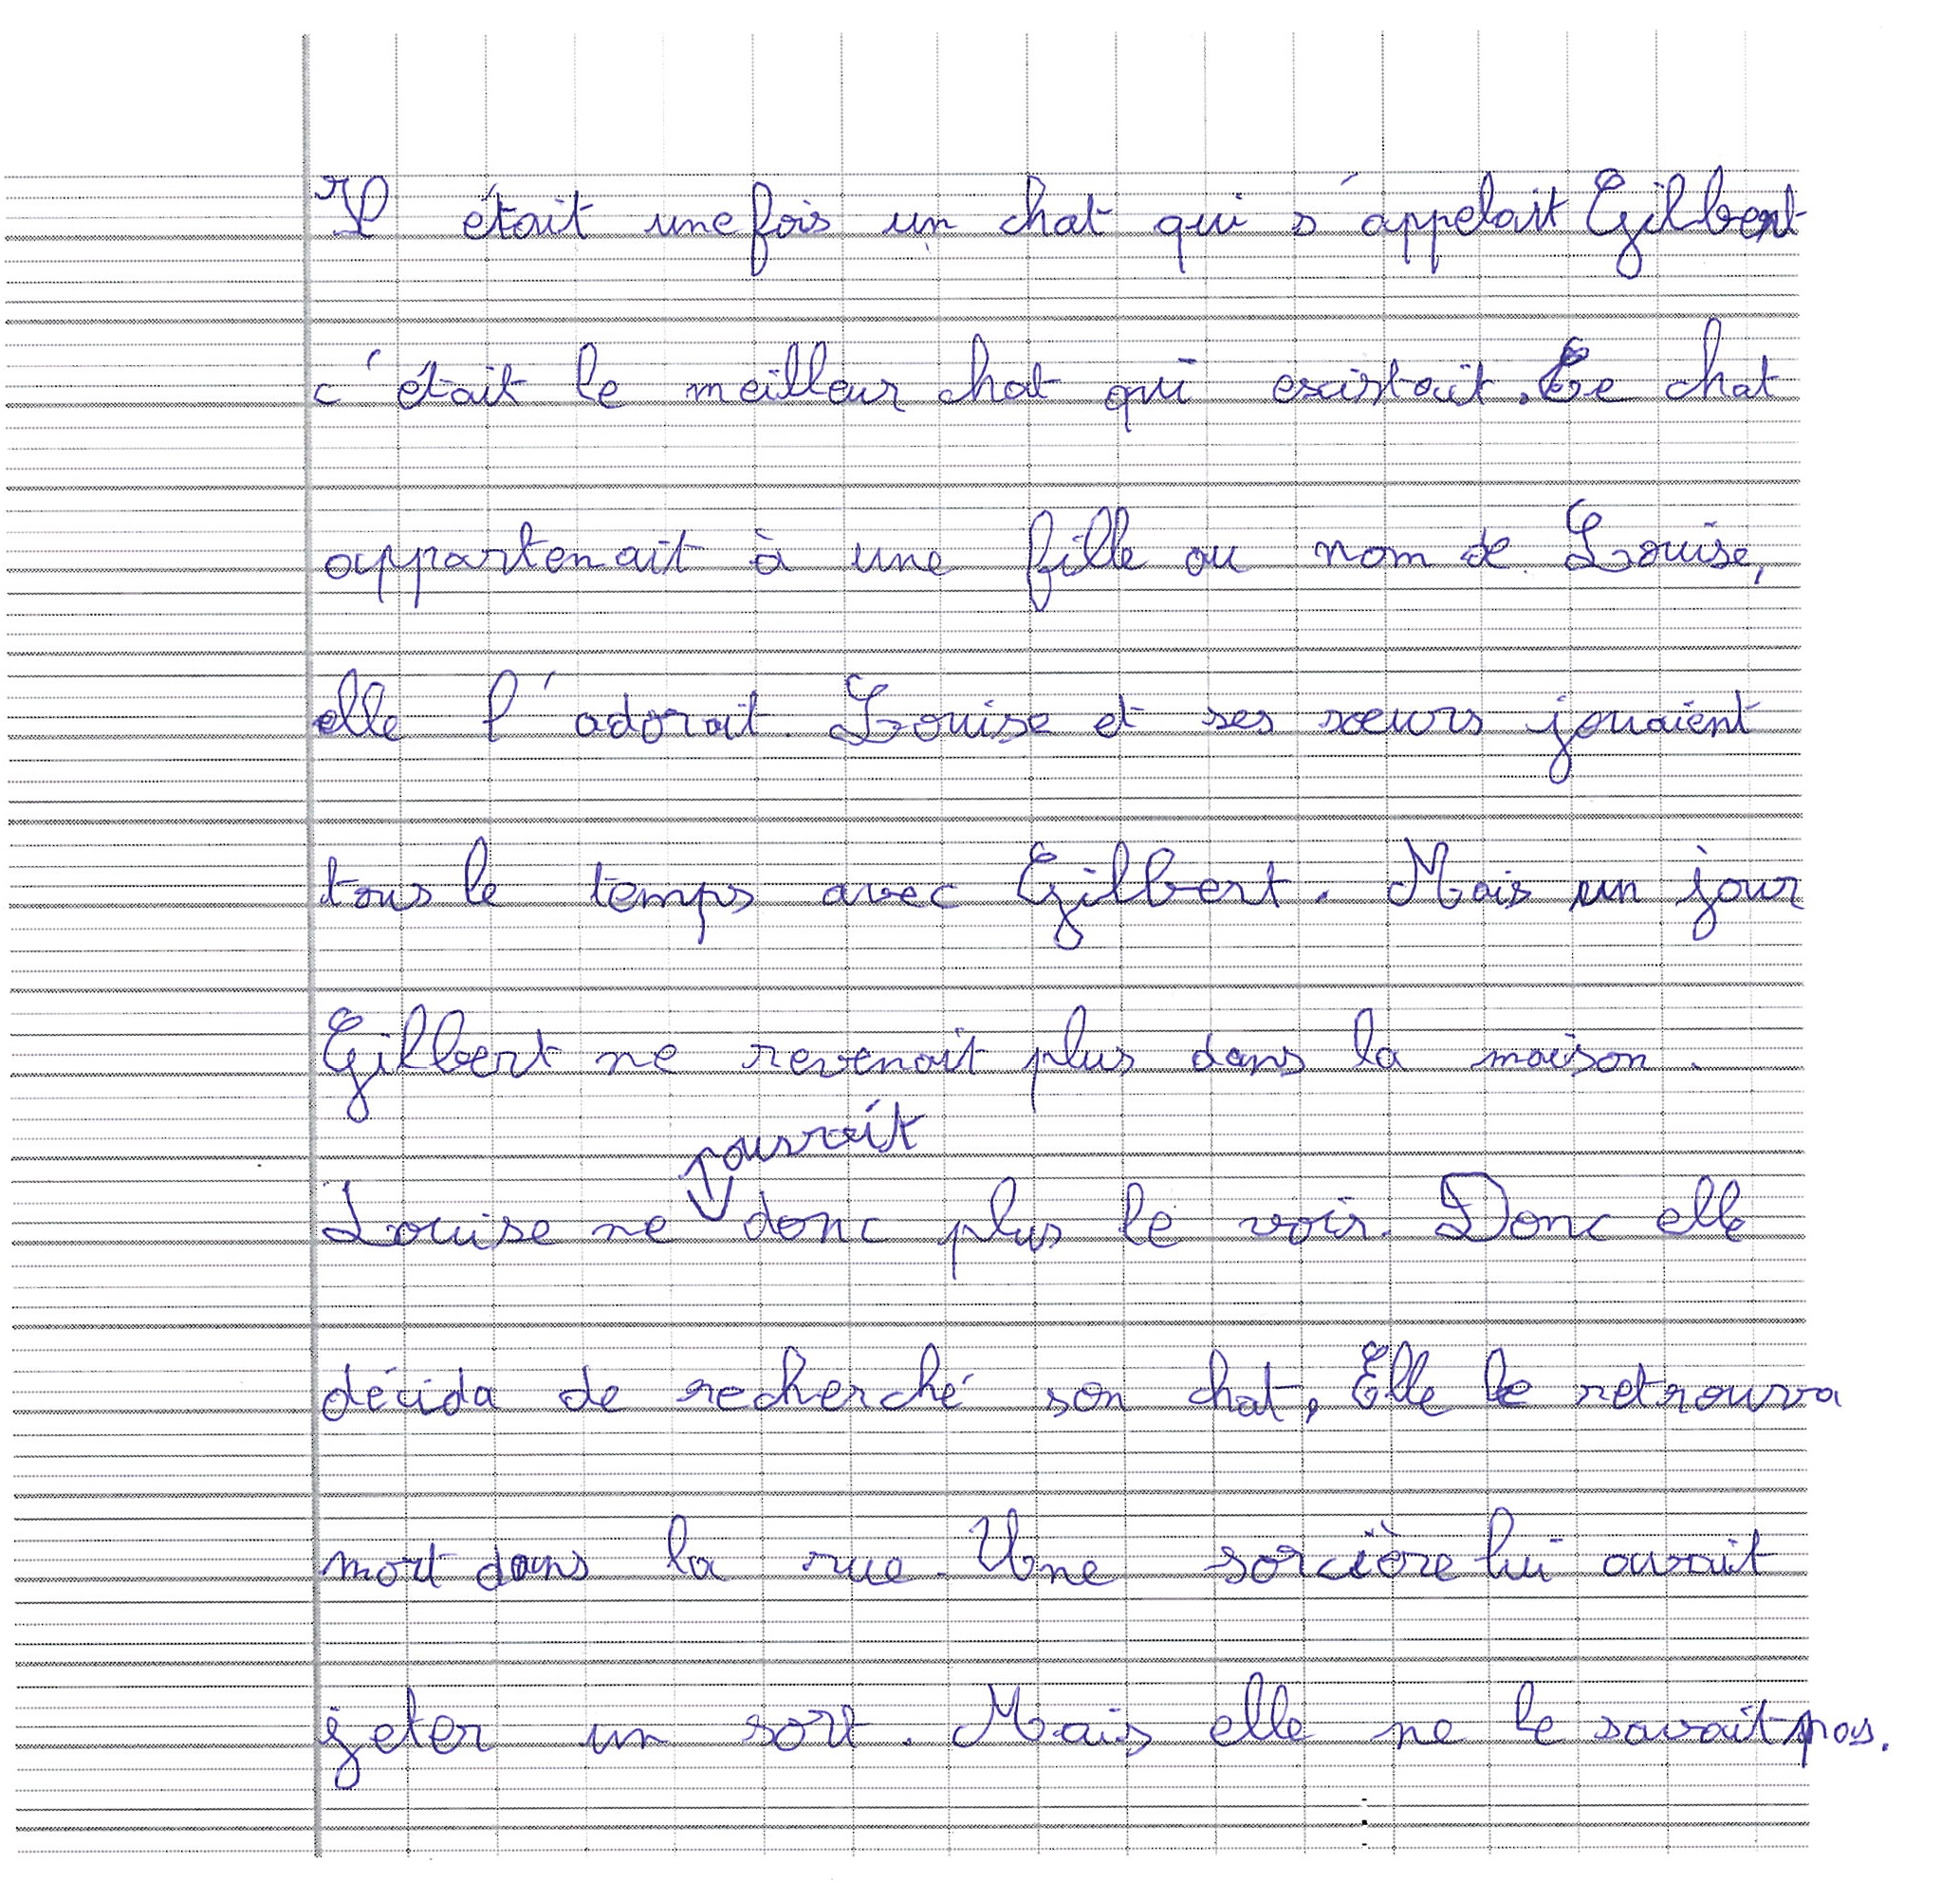 Il était une fois un chat qui s'appelait Gilbert
c'était le meilleur chat qui existait. Ce chat
appartenait à une fille au nom de Louise,
elle l'adorait. Louise et ses sœurs jouaient
tous le temps avec Gilbert. Mais un jour
Gilbert ne revenait plus dans la maison.
pouvait
Louise ne donc plus le voir. Donc elle
décida de recherché son chat, Elle le retrouva
mort dans la rue. Une sorcière lui avait
jeter un sort. Mais elle ne le savait pas.